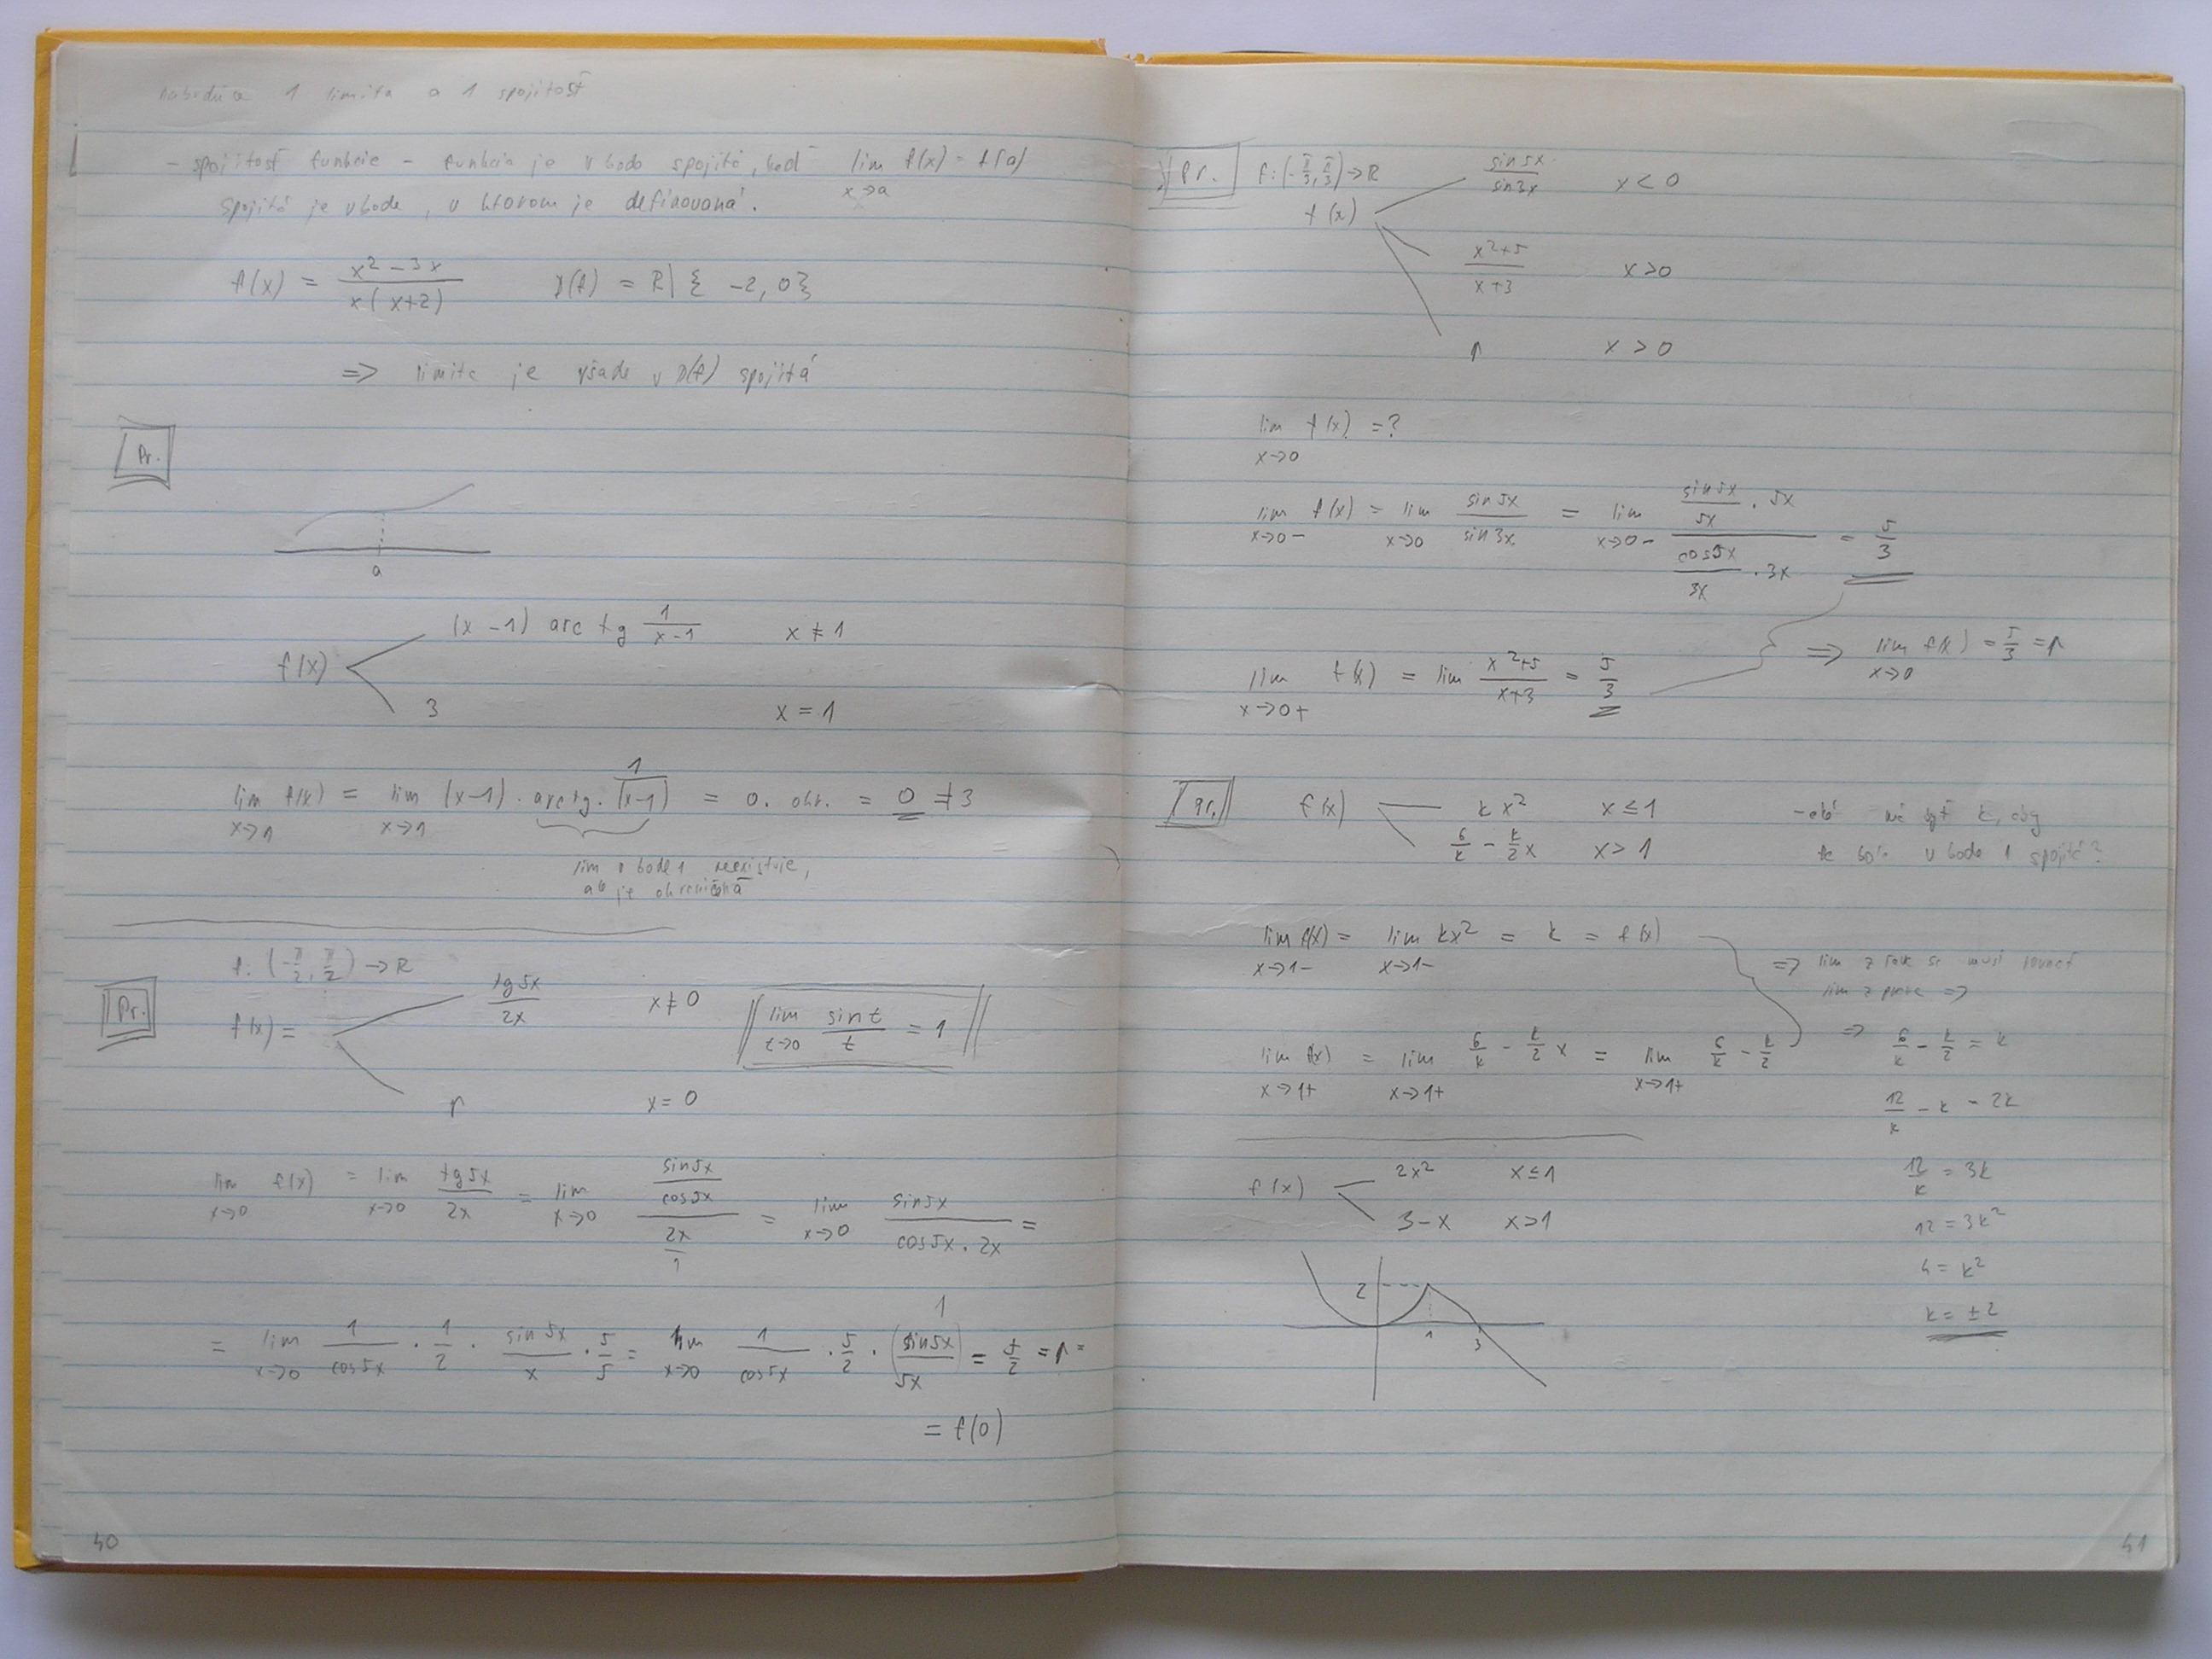 1 limita a 1 spojitosť
- spojitosť funkcie - funkcia je v bode spojitá, keď lim x→a f(x) = f(a)
spojitá je v bode, v ktorom je definovaná.
f(x) = (x² - 3x)/(x(x+2)) D(f) = R \ { -2, 0}
=> limita je všade v D(f) spojitá
Pr.
a
f(x) (x - 1) arc tg 1/(x-1) x ≠ 1
3 x = 1
lim x→1 f(x) = lim x→1 (x-1) . arctg . 1/(x-1) = 0. ohr. = 0 ≠ 3
lim v bode 1 neexistuje,
ale je ohraničená
f: (-π/2, π/2) → R
Pr. f(x) = tg5x/2x x ≠ 0 lim t→0 sin t/t = 1
p x = 0
lim x→0 f(x) = lim x→0 tg5x/2x = lim x→0 (sin5x/cos5x)/(2x/1) = lim x→0 sin5x/(cos5x . 2x) =
= lim x→0 1/cos5x . 1/2 . sin5x/x . 5/5 = lim x→0 1/cos5x . 5/2 . (sin5x/5x) 1 = 5/2 = p =
= f(0)
40
Pr. f: (-π/3, π/3) → R sin5x/sin3x x < 0
f(x)
(x²+5)/(x+3) x > 0
p x > 0
lim x→0 f(x) = ?
lim x→0- f(x) = lim x→0 sin5x/sin3x = lim x→0- (sin5x/5x . 5x)/(cos5x/3x . 3x) = 5/3
lim x→0+ f(x) = lim (x²+5)/(x+3) = 5/3 => lim x→0 f(x) = 5/3 = p
Pr. f(x) kx² x ≤ 1 - aké má byť k, aby
6/k - k/2 x x > 1 v bode 1 spojitá?
lim x→1- f(x) = lim x→1- kx² = k = f(x)
=> lim z ľava sa musí rovnať
lim z prava =>
lim x→1+ f(x) = lim x→1+ 6/k - k/2 x = lim x→1+ 6/k - k/2 => 6/k - k/2 = k
12/k - k = 2k
12/k = 3k
12 = 3k²
4 = k²
k = ±2
f(x) 2x² x ≤ 1
3 - x x > 1
2
1 3
41